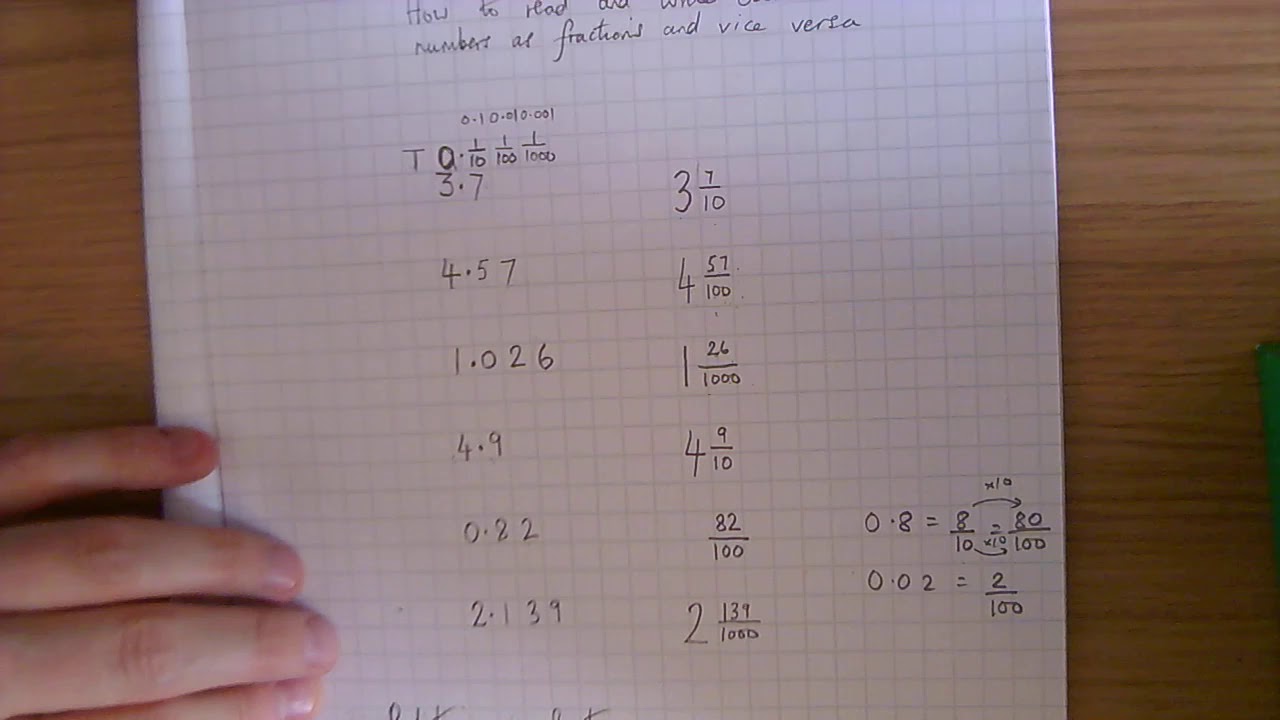 How to read and write
numbers as fractions and vice versa
0.1 0.01 0.001
T O . 1/10 1/100 1/1000
3.7 3 7/10
4.57 4 57/100
1.026 1 26/1000
4.9 4 9/10
×10
0.82 82/100 0.8 = 8/10 = 80/100
×10
0.02 = 2/100
2.139 2 139/1000